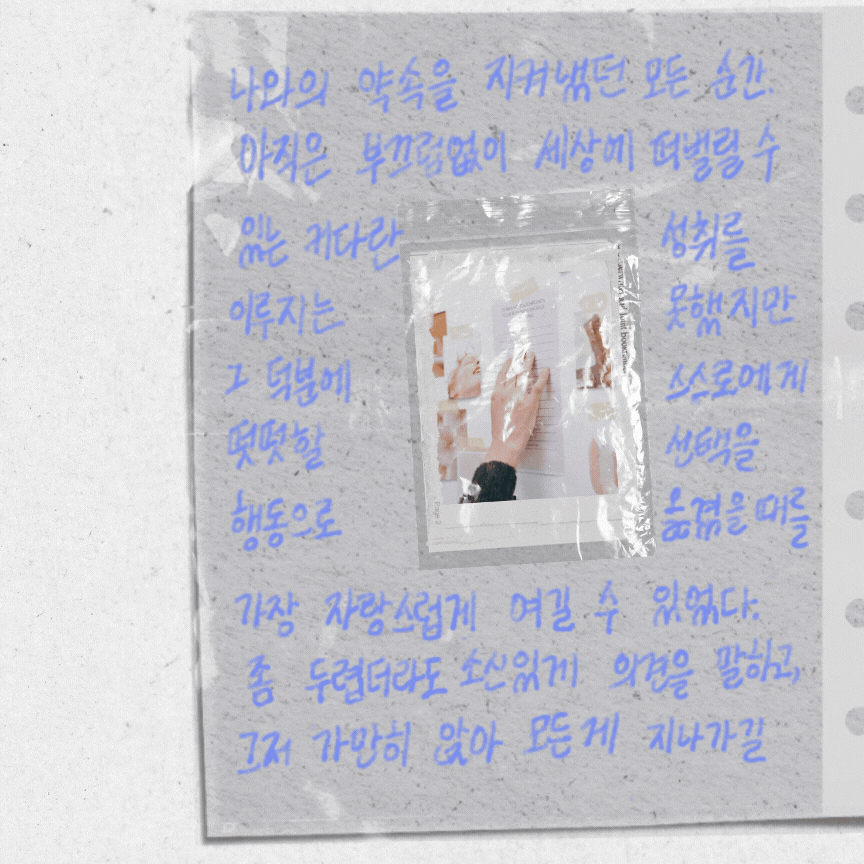 나와의 약속을 지켜냈던 모든 순간.
아직은 부끄럼없이 세상에 떠벌릴 수
있는 커다란 성취를
이루지는 못했지만
그 덕분에 스스로에게
떳떳할 선택을
행동으로 옮겼을 때를
가장 자랑스럽게 여길 수 있었다.
좀 두렵더라도 소신있게 의견을 말하고,
그저 가만히 앉아 모든게 지나가길
Page 2